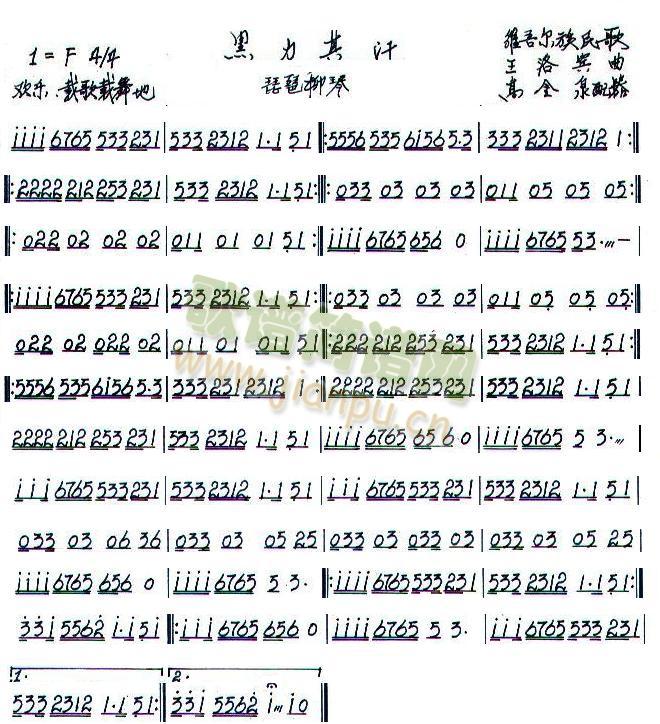 黑力其汗
1=F 4/4
维吾尔族民歌
王洛宾曲
欢乐、载歌载舞地
琵琶柳琴
高全泉配器
i i i i 6765 533 231 | 533 2312 1·1 51 ‖: 5556 535 6156 5·3 | 333 2311 2312 1 :‖
‖: 2222 212 253 231 | 533 2312 1·1 51 :‖: 033 03 03 03 | 011 05 05 05 :‖
‖: 022 02 02 02 | 011 01 01 51 :‖ i i i i 6765 656 0 | i i i i 6765 53· 〃 — |
‖: i i i i 6765 533 231 | 533 2312 1·1 51 :‖: 033 03 03 03 | 011 05 05 05 :‖
022 02 022 02 | 011 01 011 51 ‖: 222 212 253 231 | 533 2312 1·1 51 :‖
‖: 5556 535 6156 5·3 | 333 231 2312 1 :‖ 2222 212 253 231 | 533 2312 1·1 51 |
2222 212 253 231 | 533 2312 1·1 51 | i i i i 6765 656·0 | i i i i 6765 5 3· 〃 |
i i i 6765 533 231 | 533 2312 1·1 51 | i i i 6765 533 231 | 533 2312 1·1 51 |
033 03 06 36 | 033 03 05 25 | 033 03 03 03 | 033 03 05 25 |
i i i i 6765 656 0 | i i i i 6765 5 3· ‖: i i i i 6765 533 231 | 533 2312 1·1 51 :‖
3 3 i 5562 i·i 5i ‖: i i i 6765 656 0 | i i i i 6765 5 3· | i i i i 6765 533 231 |
1. 2.
533 2312 1·1 51 :‖ 3 3 i 5562 i 〃 i 0 ‖
歌谱简谱网
www.jianpu.cn